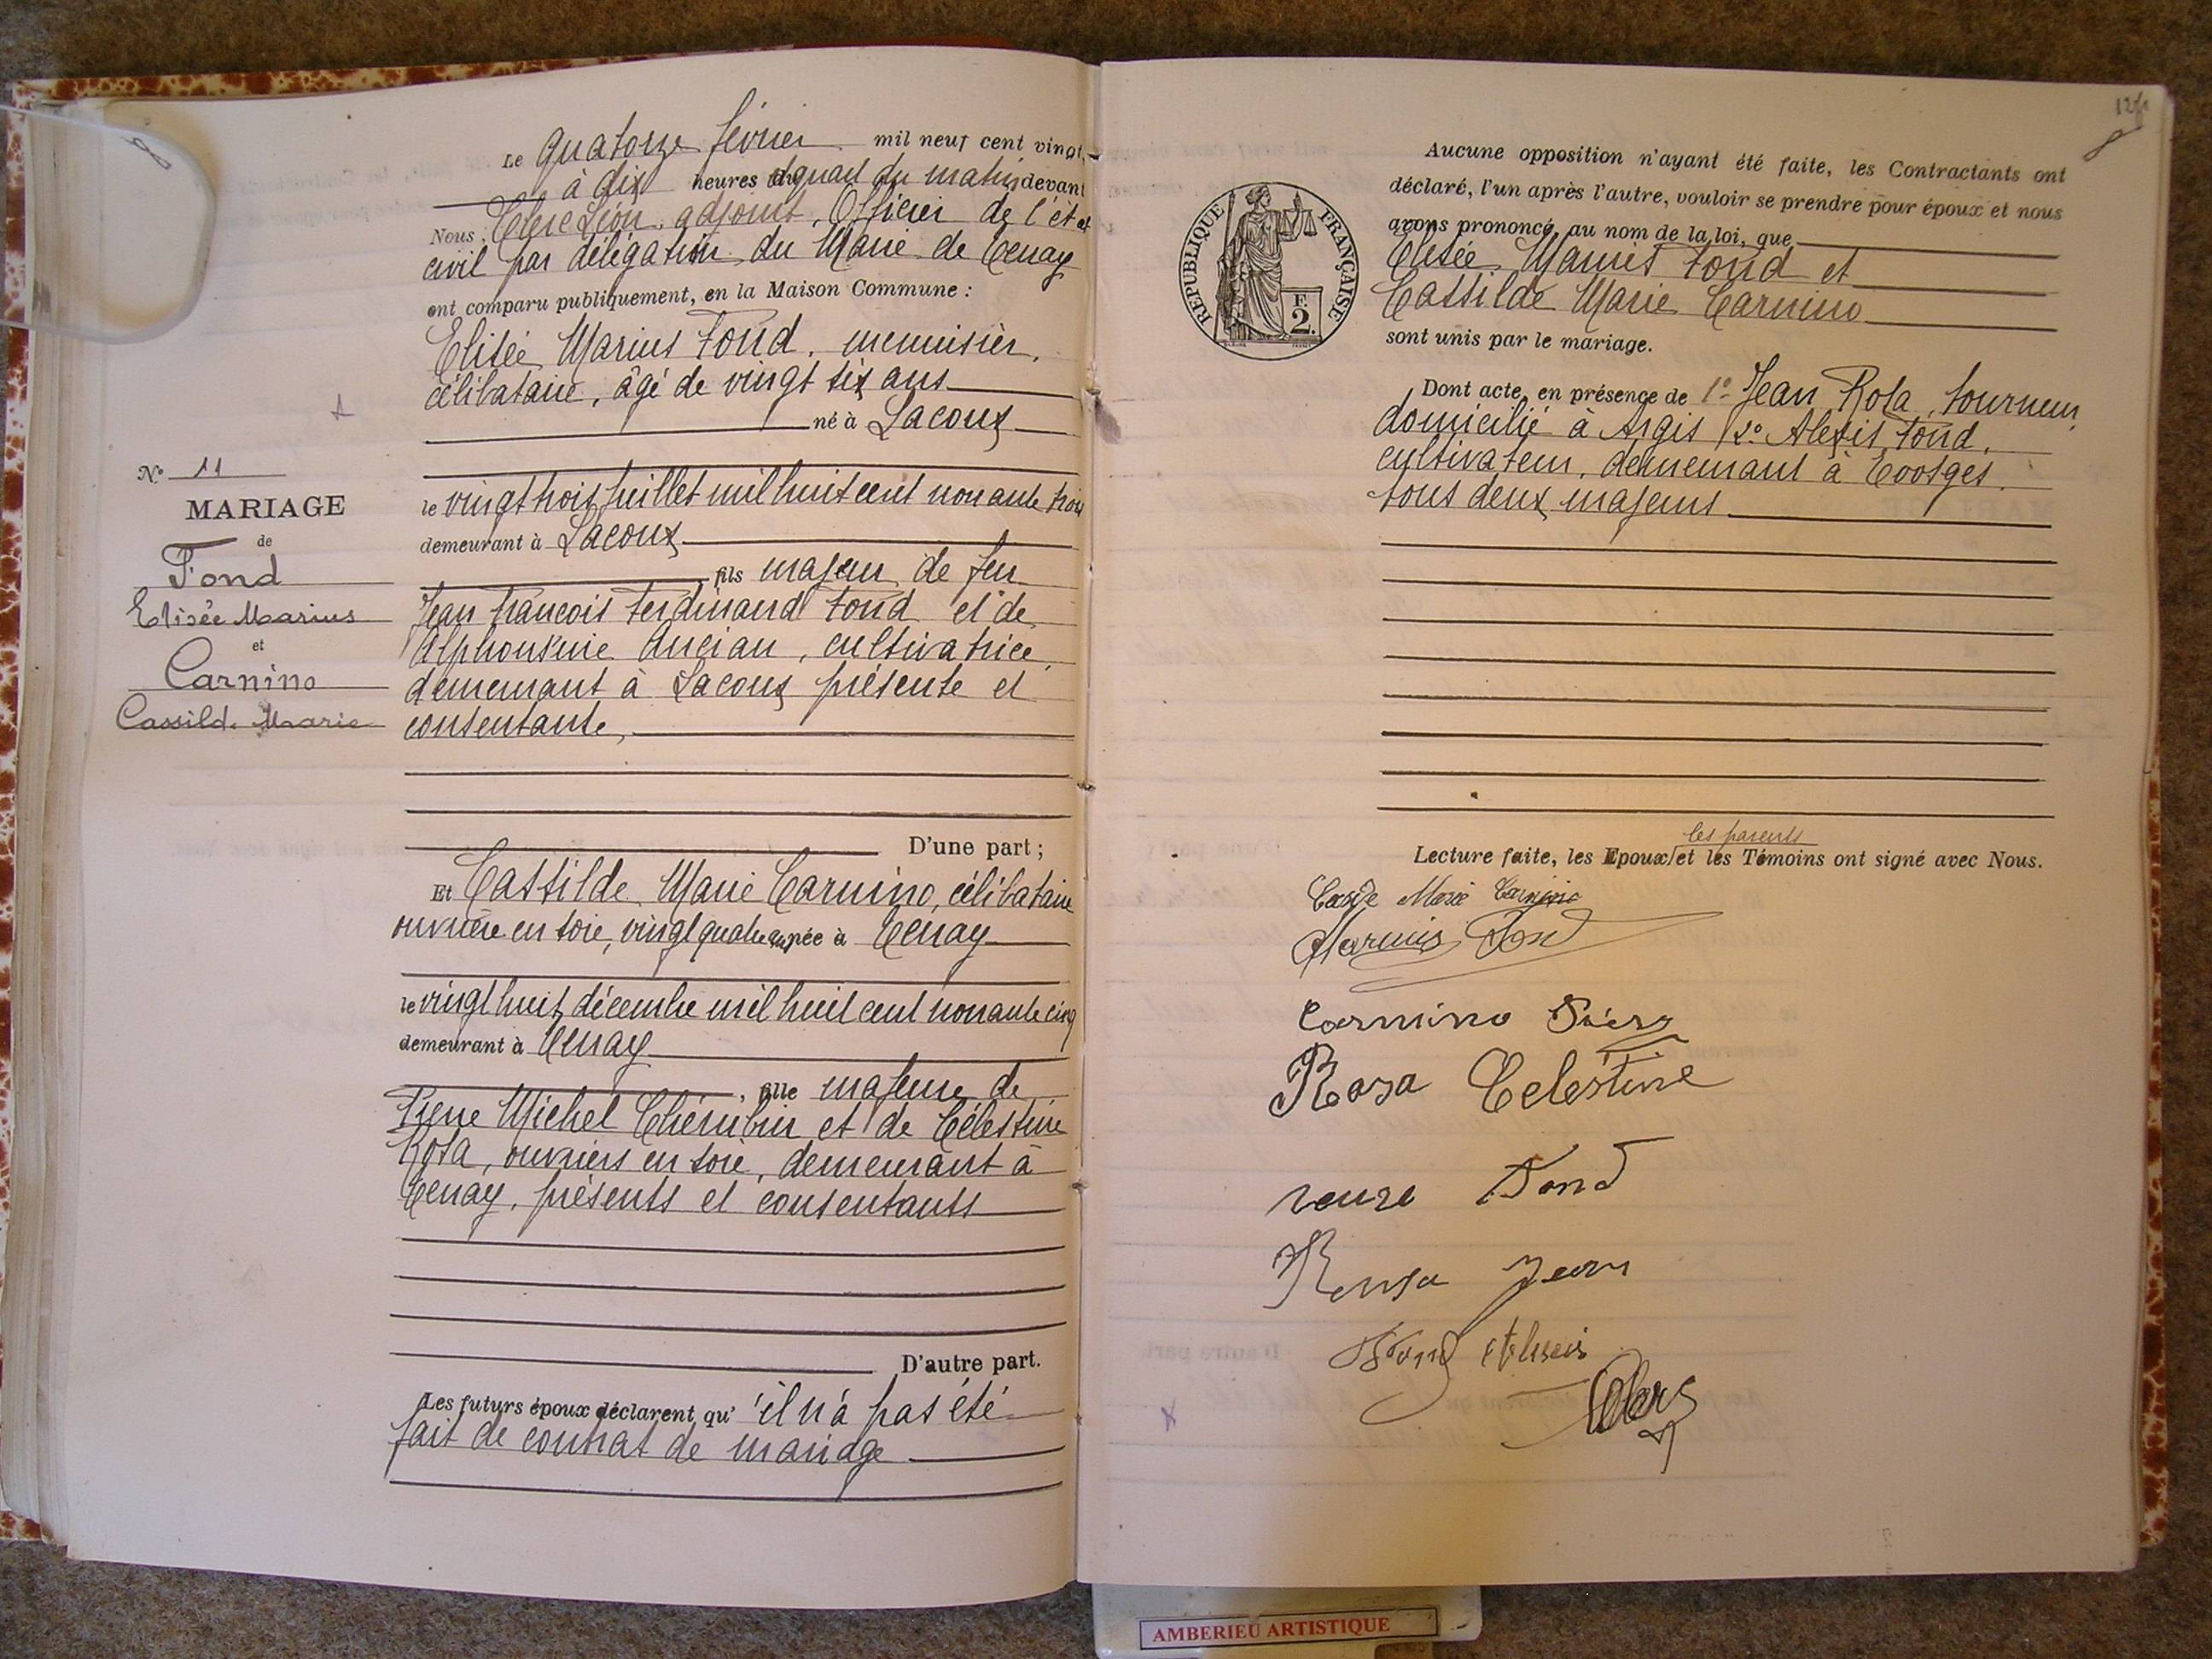 Le quatorze février mil neuf cent vingt,
à dix heures un quart du matin devant
Nous, Clerc Léon, adjoint, Officier de l'état
civil par délégation du Maire de Tenay
ont comparu publiquement, en la Maison Commune :
Elisée Marius Fond, menuisier,
célibataire, âgé de vingt six ans
né à Lacoux
le vingt trois juillet mil huit cent nonante trois
demeurant à Lacoux
fils majeur de feu
Jean François Ferdinand Fond et de
Alphonsine Ancian, cultivatrice,
demeurant à Lacoux présente et
consentante,
D'une part ;
Et Cassilde Marie Carnino, célibataire
ouvrière en soie, vingt quatre ans née à Tenay
le vingt huit décembre mil huit cent nonante cinq
demeurant à Tenay
, fille majeure de
Pierre Michel Chérubin et de Célestine
Rosa, ouvriers en soie, demeurant à
Tenay, présents et consentants
D'autre part.
Les futurs époux déclarent qu'il n'a pas été
fait de contrat de mariage
N° 11
MARIAGE
de
Fond
Elisée Marius
et
Carnino
Cassilde Marie
Aucune opposition n'ayant été faite, les Contractants ont
déclaré, l'un après l'autre, vouloir se prendre pour époux et nous
avons prononcé, au nom de la loi, que
Elisée Marius Fond et
Cassilde Marie Carnino
sont unis par le mariage.
RÉPUBLIQUE FRANÇAISE
F.
2.
Dont acte, en présence de 1° Jean Rosa, tourneur,
domicilié à Argis, 2° Alexis Fond,
cultivateur, demeurant à Evosges,
tous deux majeurs
les parents
Lecture faite, les Epoux et les Témoins ont signé avec Nous.
Marie Carnino
Marius Fond
Carnino
Rosa Celestine
veuve Fond
Rosa Jean
Fond Alexis
Clerc
AMBERIEU ARTISTIQUE